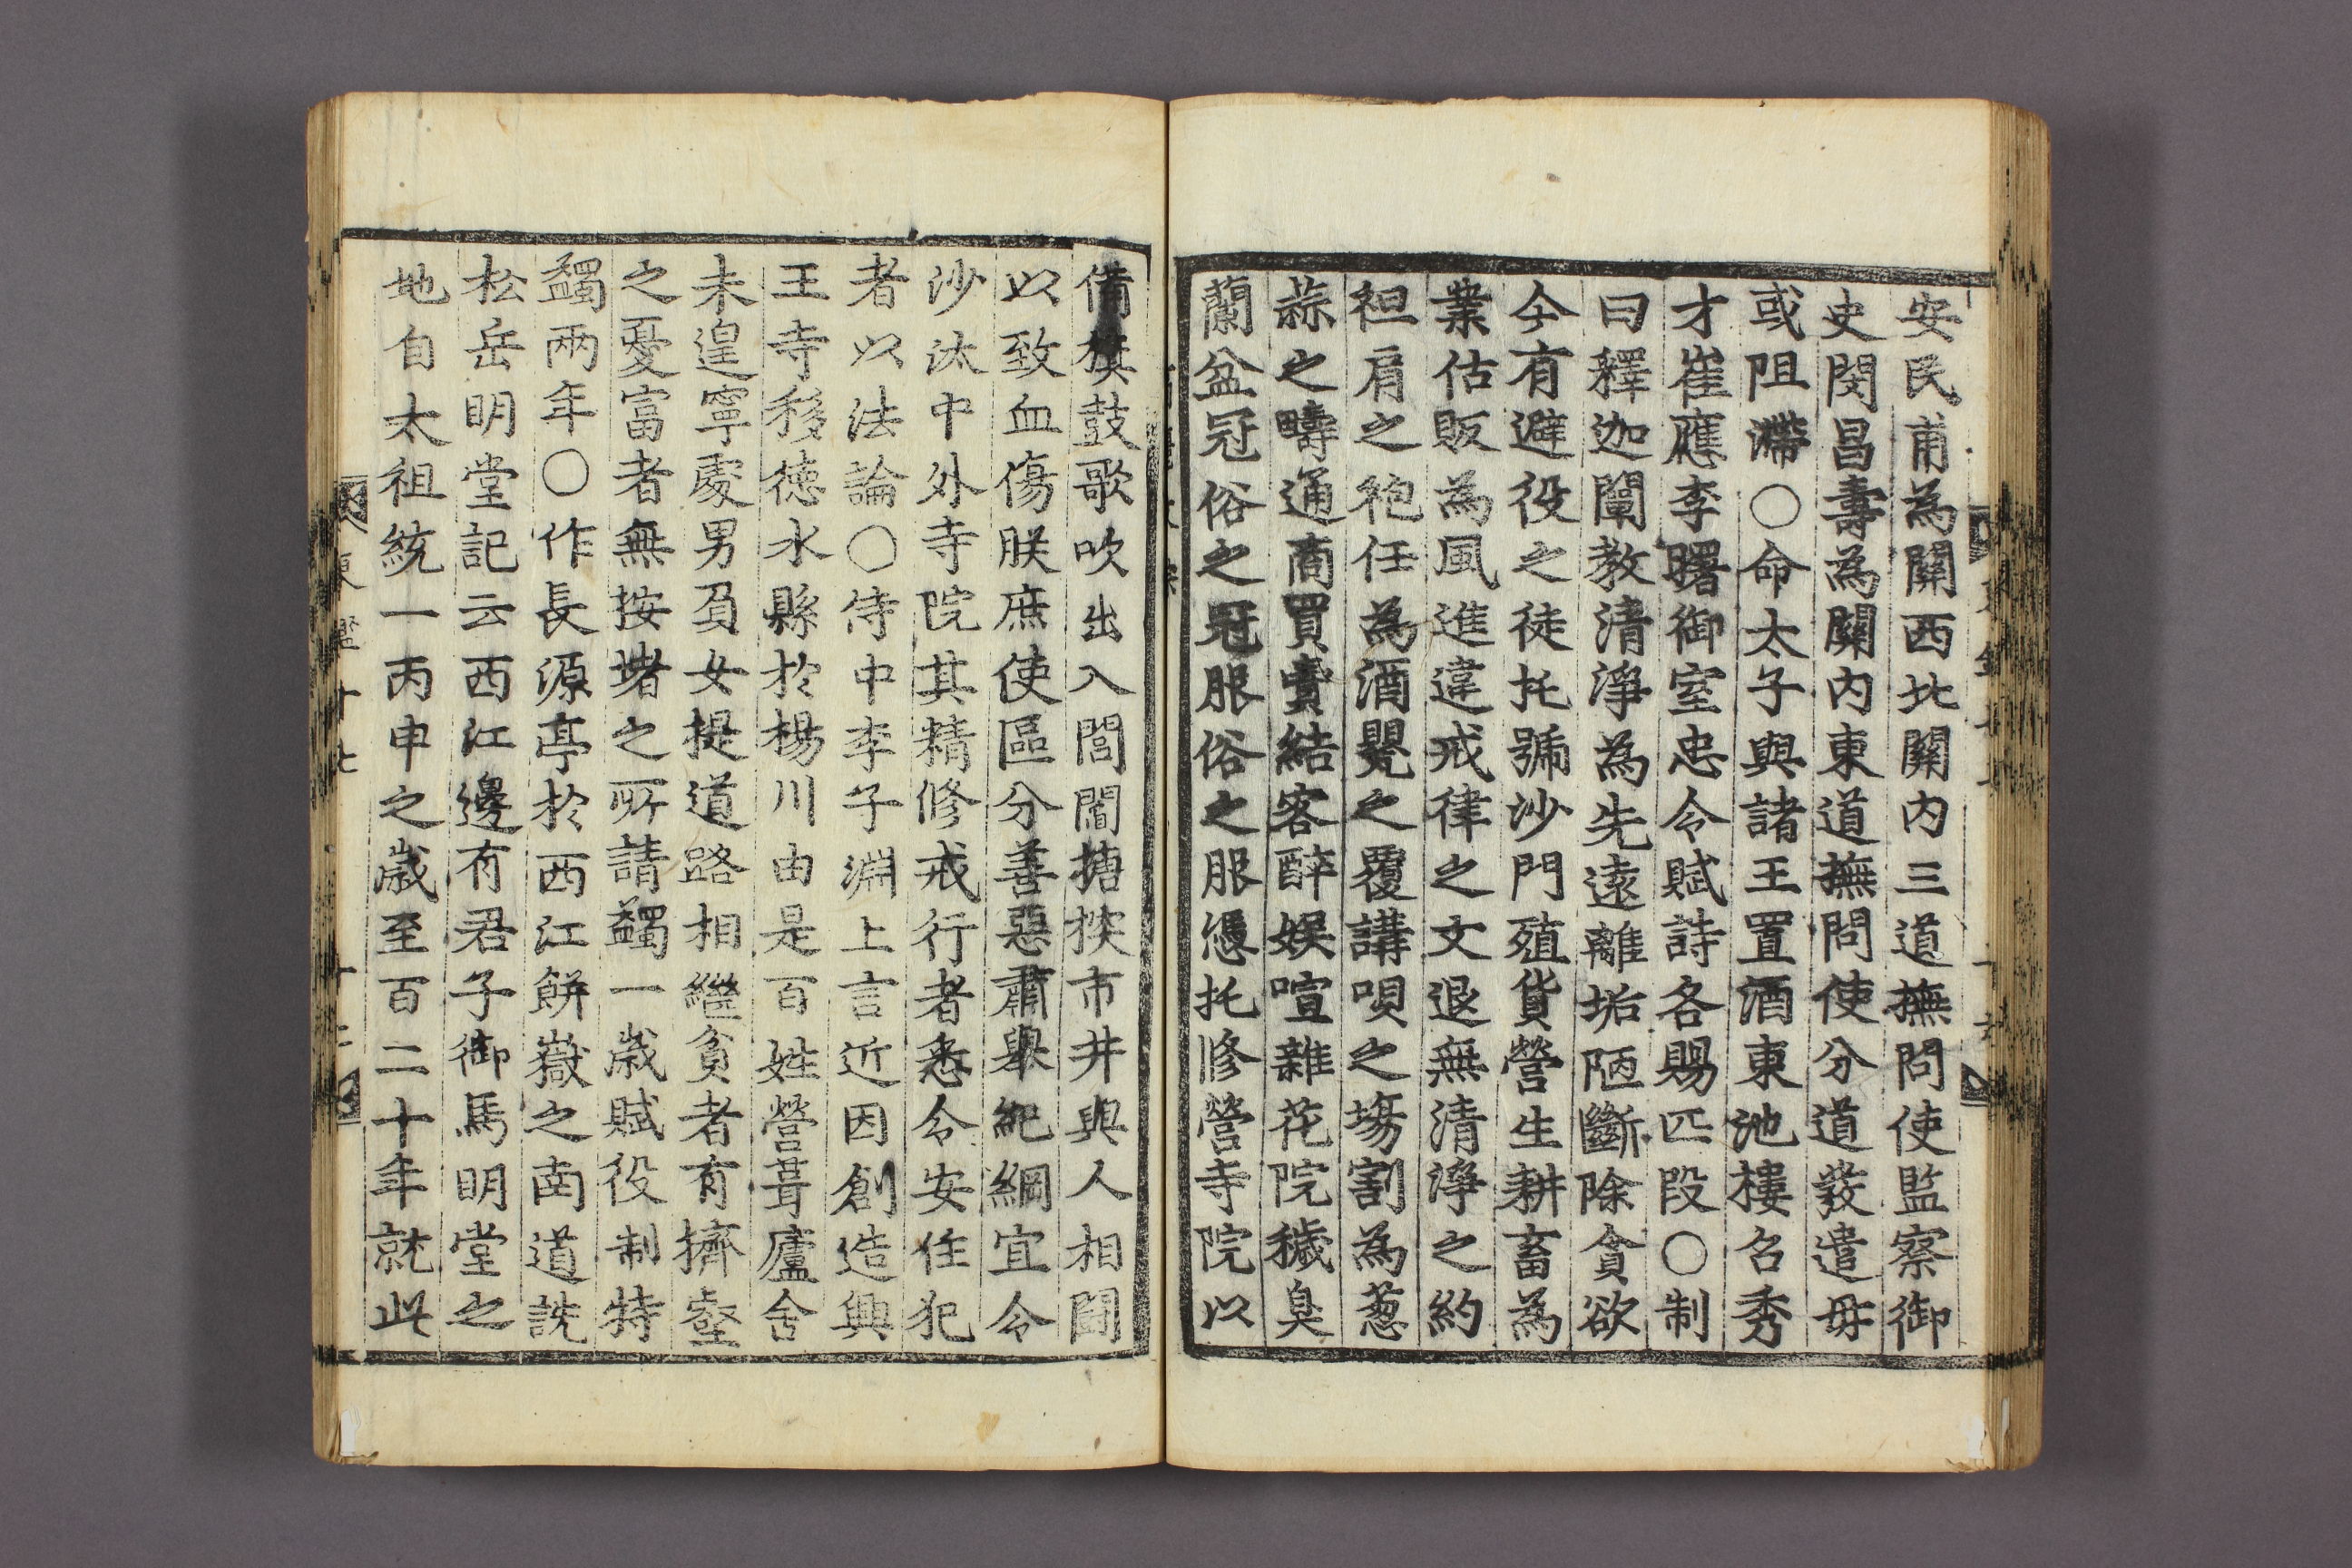 安民甫為關西北關内三道撫問使監察御
史閔昌壽為關内東道撫問使分道發遣毋
或阻滯○命太子與諸王置酒東池樓召秀
才崔應李曙御室忠令賦詩各賜匹段○制
曰釋迦闡教清淨為先遠離垢陋斷除貪欲
今有避役之徒托號沙門殖貨營生耕畜為
業估販為風進違戒律之文退無清淨之約
袒肩之袍任為酒甖之覆講唄之場割為葱
蒜之疇通商買賣結客醉娛喧雜花院穢臭
蘭盆冠俗之冠服俗之服憑托修營寺院以
備旗鼓歌吹出入閭閻搪揬市井與人相鬪
以致血傷朕庶使區分善惡肅舉紀綱宜令
沙汰中外寺院其精修戒行者悉令安住犯
者以法論○侍中李子淵上言近因創造興
王寺移德水縣於楊川由是百姓營葺廬舍
未遑寧處男負女提道路相繼貧者有擠壑
之憂富者無按堵之所請蠲一歲賦役制特
蠲兩年○作長源亭於西江餠嶽之南道詵
松岳明堂記云西江邊有君子御馬明堂之
地自太祖統一丙申之歲至百二十年就此
東鑑十七